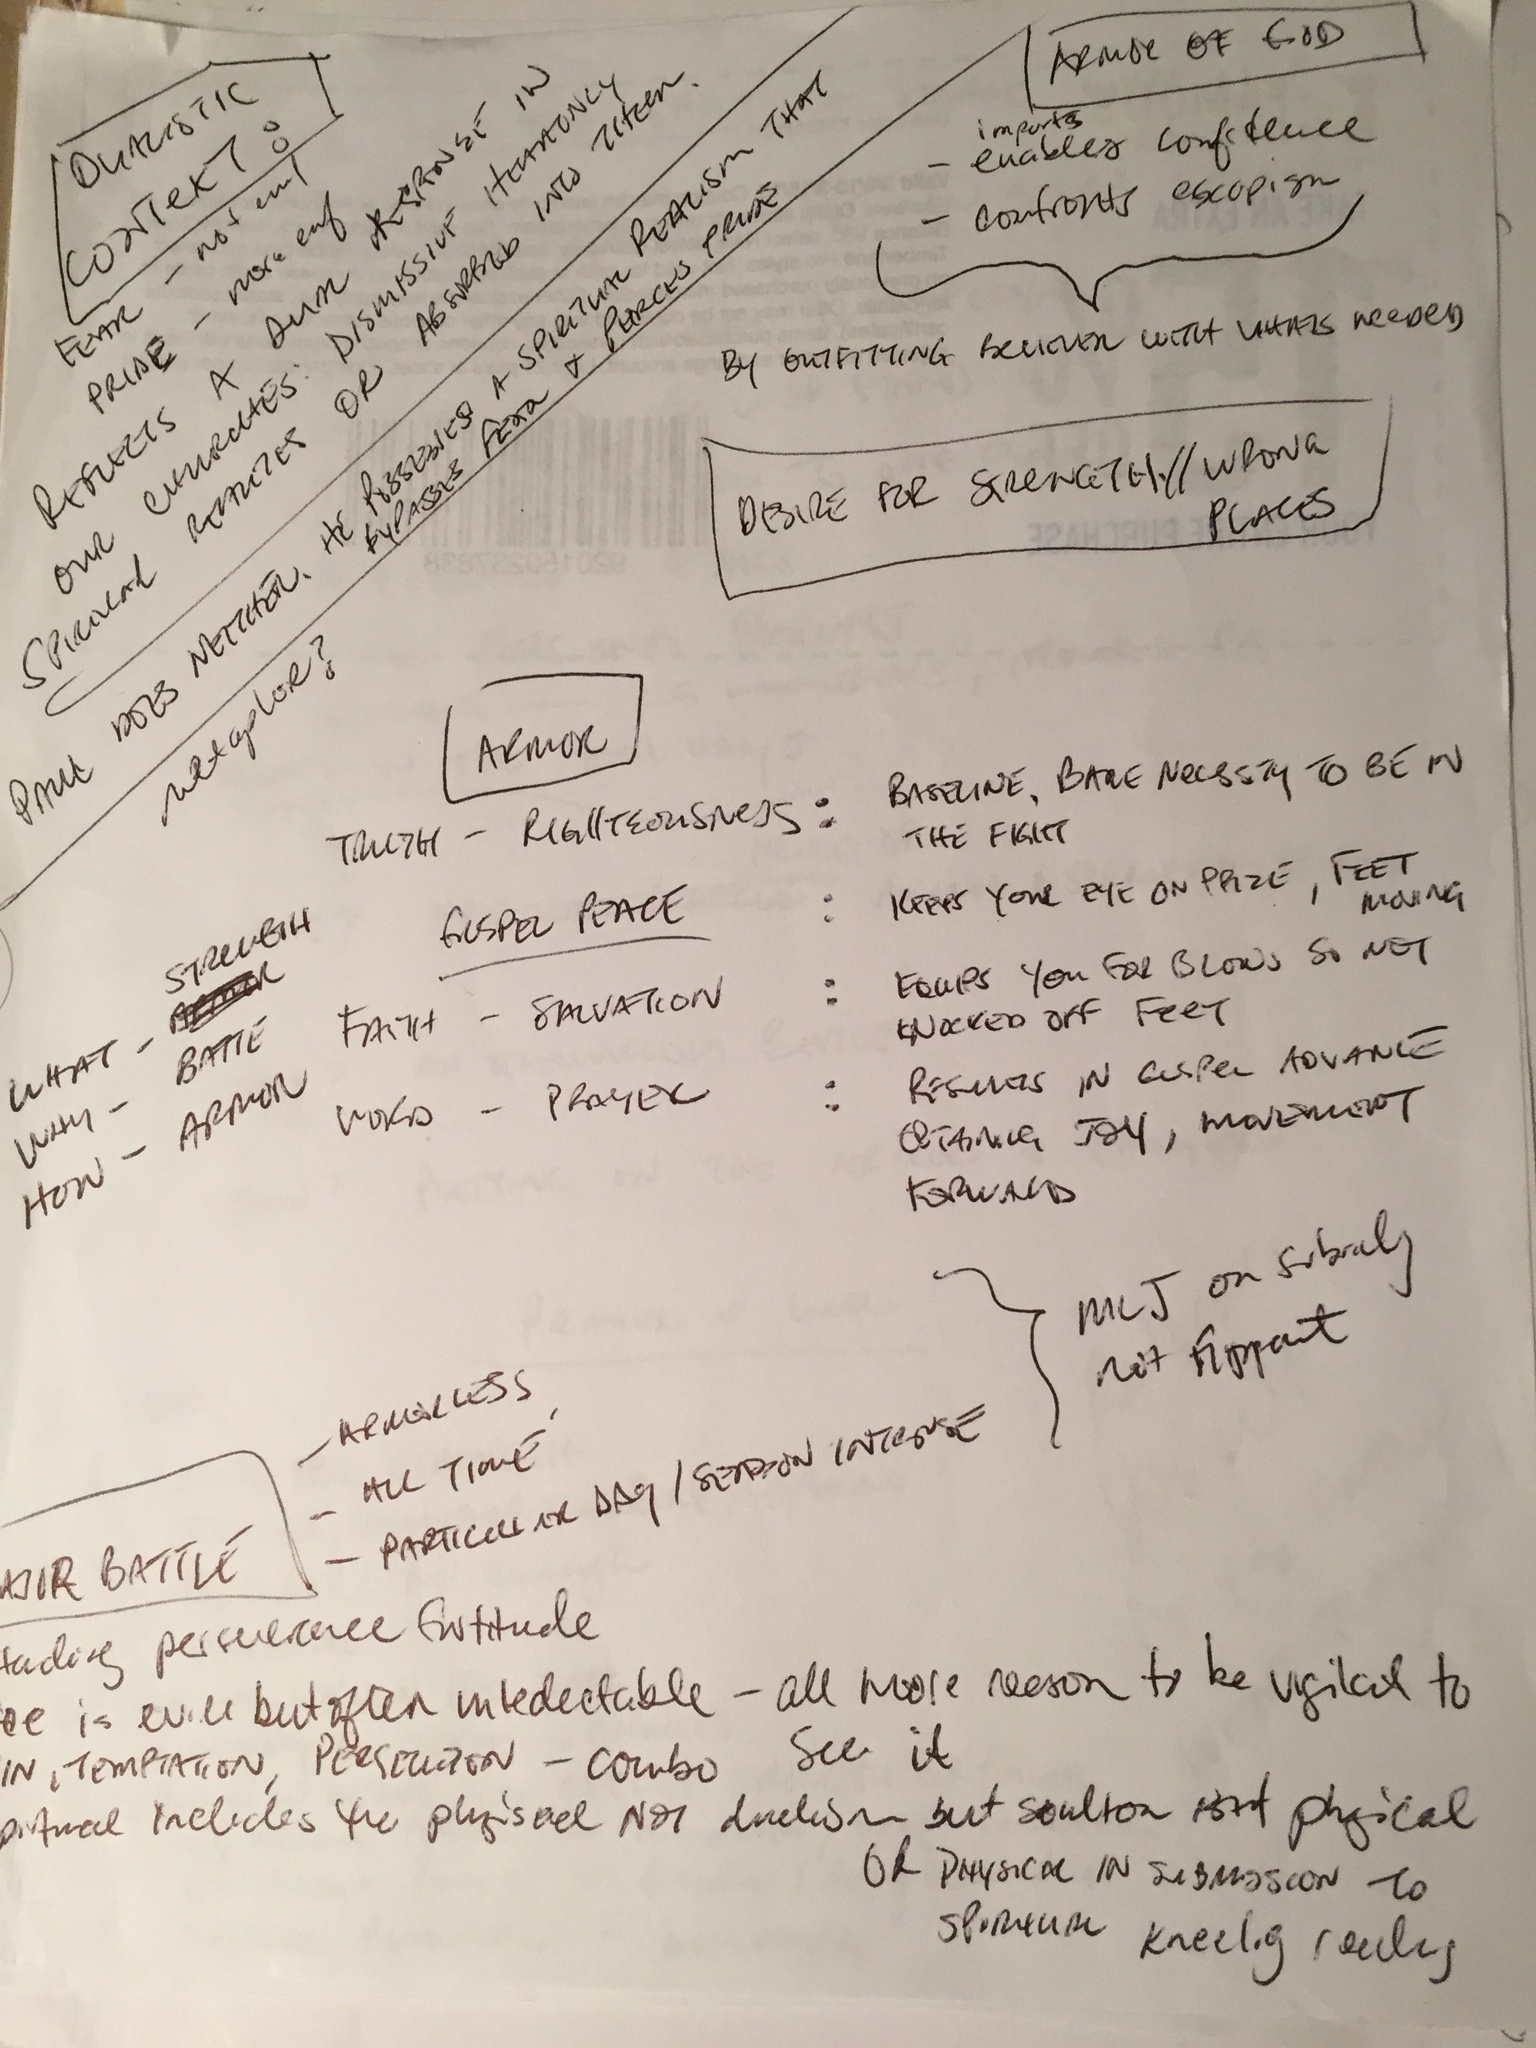 DUALISTIC
CONTEXT?
FEAR - not enuf
PRIDE - more enuf
REFLECTS A DUAL RESPONSE IN
OUR CHURCHES: DISMISSIVE
SPIRITUAL REALITIES OR ABSORBED INTO THEM.
PAUL DOES NEITHER. HE POSSESSES A SPIRITUAL REALISM THAT
BYPASSES FEAR & PIERCES PRIDE
metaphor?
ARMOR OF GOD
imparts
- enables confidence
- confronts escapism
BY OUTFITTING BELIEVER WITH WHATS NEEDED
DESIRE FOR STRENGTH // WRONG
PLACES
ARMOR
TRUTH - RIGHTEOUSNESS : BASELINE, BARE NECESSTY TO BE IN
THE FIGHT
GOSPEL PEACE : KEEPS YOUR EYE ON PRIZE, FEET
MOVING
FAITH - SALVATION : EQUIPS YOU FOR BLOWS SO NOT
KNOCKED OFF FEET
WORD - PRAYER : RESULTS IN GOSPEL ADVANCE
OBTAINING JOY, MOVEMENT
FORWARD
STRENGTH
WHAT - ARMOR
WHY - BATTE
HOW - ARMOR
MLJ on
not flippant
- ARMORLESS
- ALL TIME
- PARTICULAR DAY / SEASON INTENSE
AJOR BATTLE
perseverence fortitude
is evil but often undedectable - all more reason to be vigilat to
see it
IN, TEMPTATION, PERSECUTION - combo
includes the physical NOT dualism but physical
OR PHYSICAL IN SUBMISSION TO
SPIRITUAL kneelig
YOUR PURCHASE
920150237838